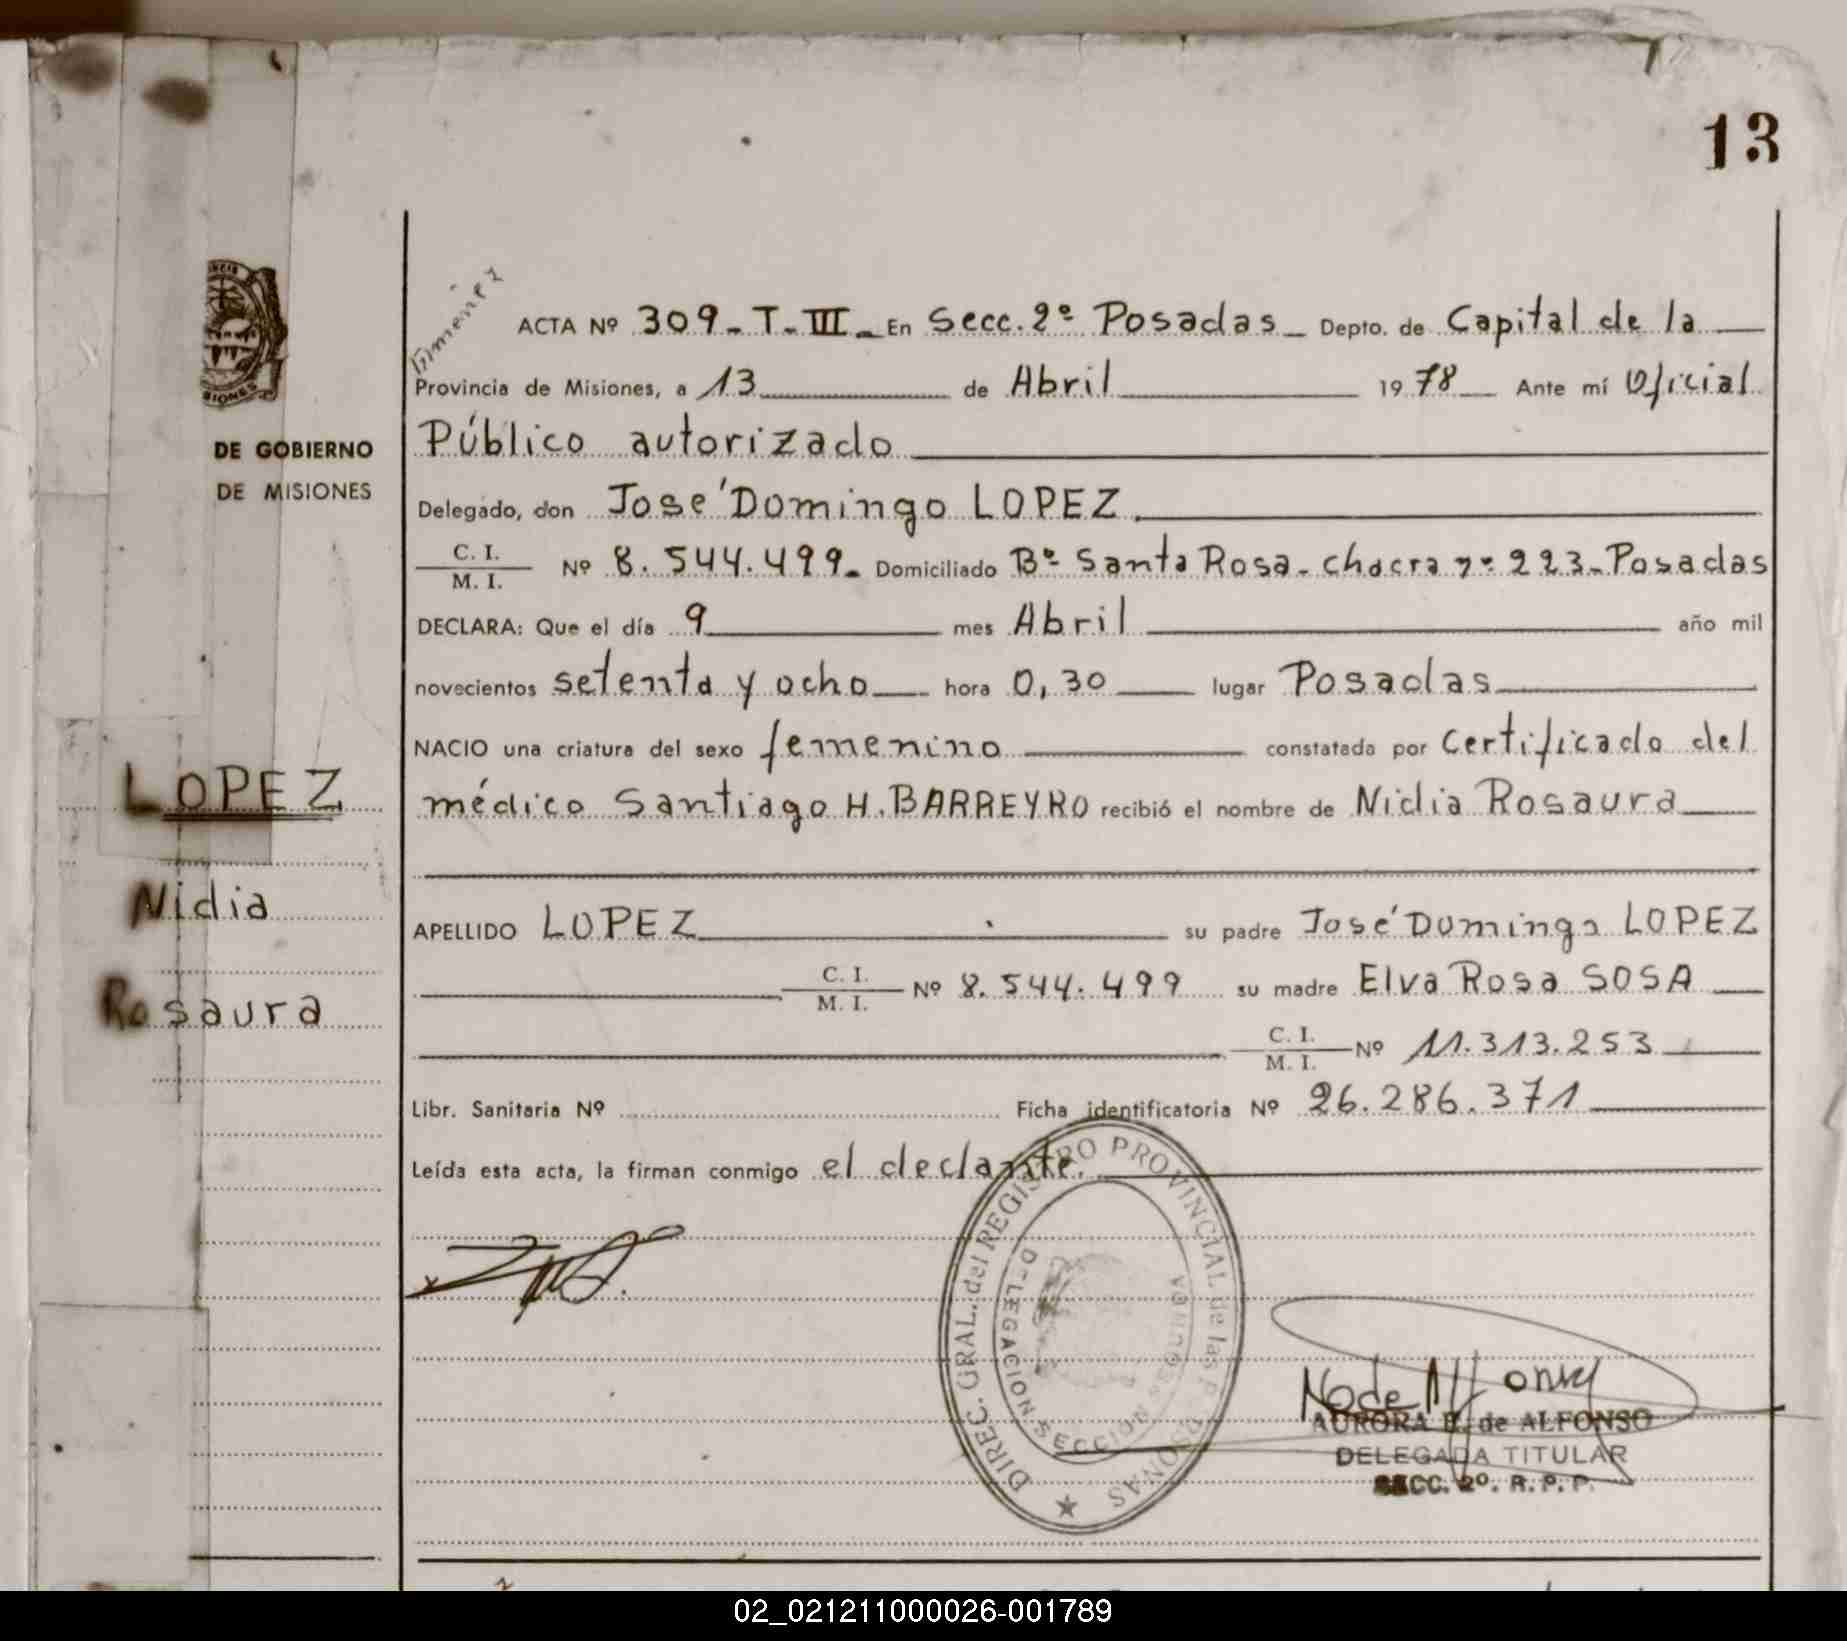 13
ACTA Nº 309_T_III_ En Secc. 2º Posadas_ Depto. de Capital de la
Provincia de Misiones, a 13 de Abril 1978 Ante mí Oficial
Público autorizado
DE GOBIERNO
DE MISIONES
Delegado, don José Domingo LOPEZ.
C. I.
M. I. Nº 8.544.499_ Domiciliado Bº Santa Rosa_ chacra nº 223_ Posadas
DECLARA: Que el día 9 mes Abril año mil
novecientos setenta y ocho hora 0,30 lugar Posadas
NACIO una criatura del sexo femenino constatada por Certificado del
médico Santiago H. BARREYRO recibió el nombre de Nidia Rosaura
LOPEZ
Nidia
Rosaura
APELLIDO LOPEZ su padre José Domingo LOPEZ
C. I.
M. I. Nº 8.544.499 su madre Elva Rosa SOSA
C. I.
M. I. Nº 11.313.253
Libr. Sanitaria Nº Ficha identificatoria Nº 26.286.371
Leída esta acta, la firman conmigo el declante.
DIREC. GRAL. del REGISTRO PROVINCIAL de las PERSONAS
DELEGACION SECCION SEGUNDA
AURORA de ALFONSO
DELEGADA TITULAR
SECC. 2º. R. P. P.
02_021211000026-001789